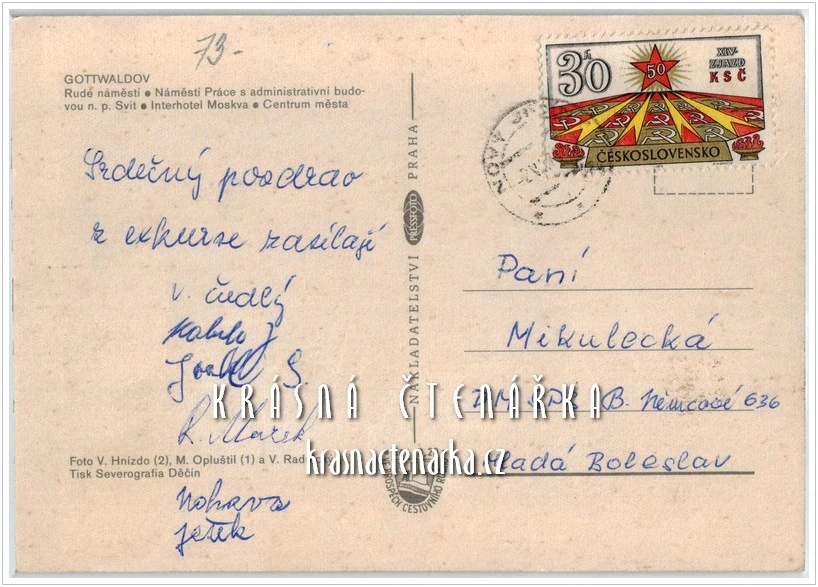 73-
GOTTWALDOV
Rudé náměstí ● Náměstí Práce s administrativní budo-
vou n. p. Svit ● Interhotel Moskva ● Centrum města
Srdečný pozdrav
z exkurse zasílají
V. Čudlý
R. Marek
Nohava
Ježek
Foto V. Hnízdo (2), M. Opluštil (1) a V. Rado
Tisk Severografia Děčín
NAKLADATELSTVÍ PRESSFOTO PRAHA
30 h
50
XIV.
ZJAZD
KSČ
ČESKOSLOVENSKO
Paní
Mikulecká
B. Němcové 636
Mladá Boleslav
KRÁSNÁ ČTENÁŘKA
krasnactenarka.cz